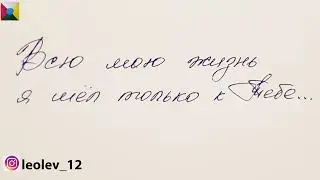 Всю мою жизнь
я шёл только к Тебе...
leolev_12